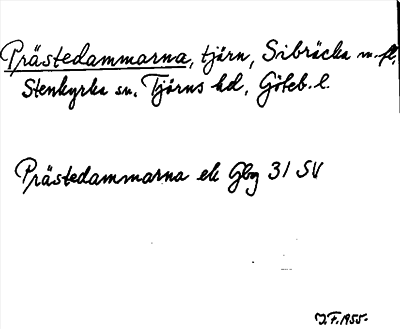 Prästedammarna, tjärn, Sibräcka m. fl,
Stenkyrka sn. Tjörns hd, Göteb. l.
Prästedammarna ek Gbg 31 SV
J.F. 1955.